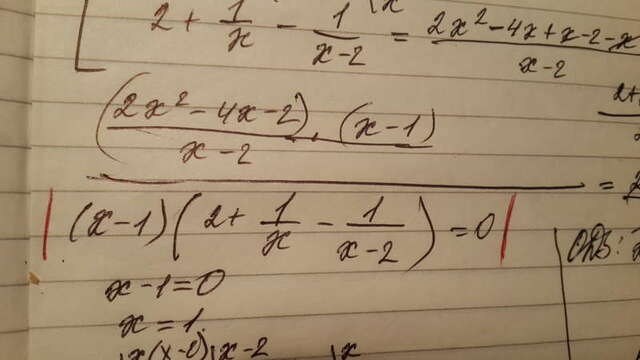 2 + 1/x - 1/(x-2) = (2x² - 4x + x - 2 - x)/(x-2)
((2x² - 4x - 2)/(x-2)) · (x-1)
=
(x-1)(2 + 1/x - 1/(x-2)) = 0
ОДЗ:
x-1=0
x=1.
x(x-2) x-2 x